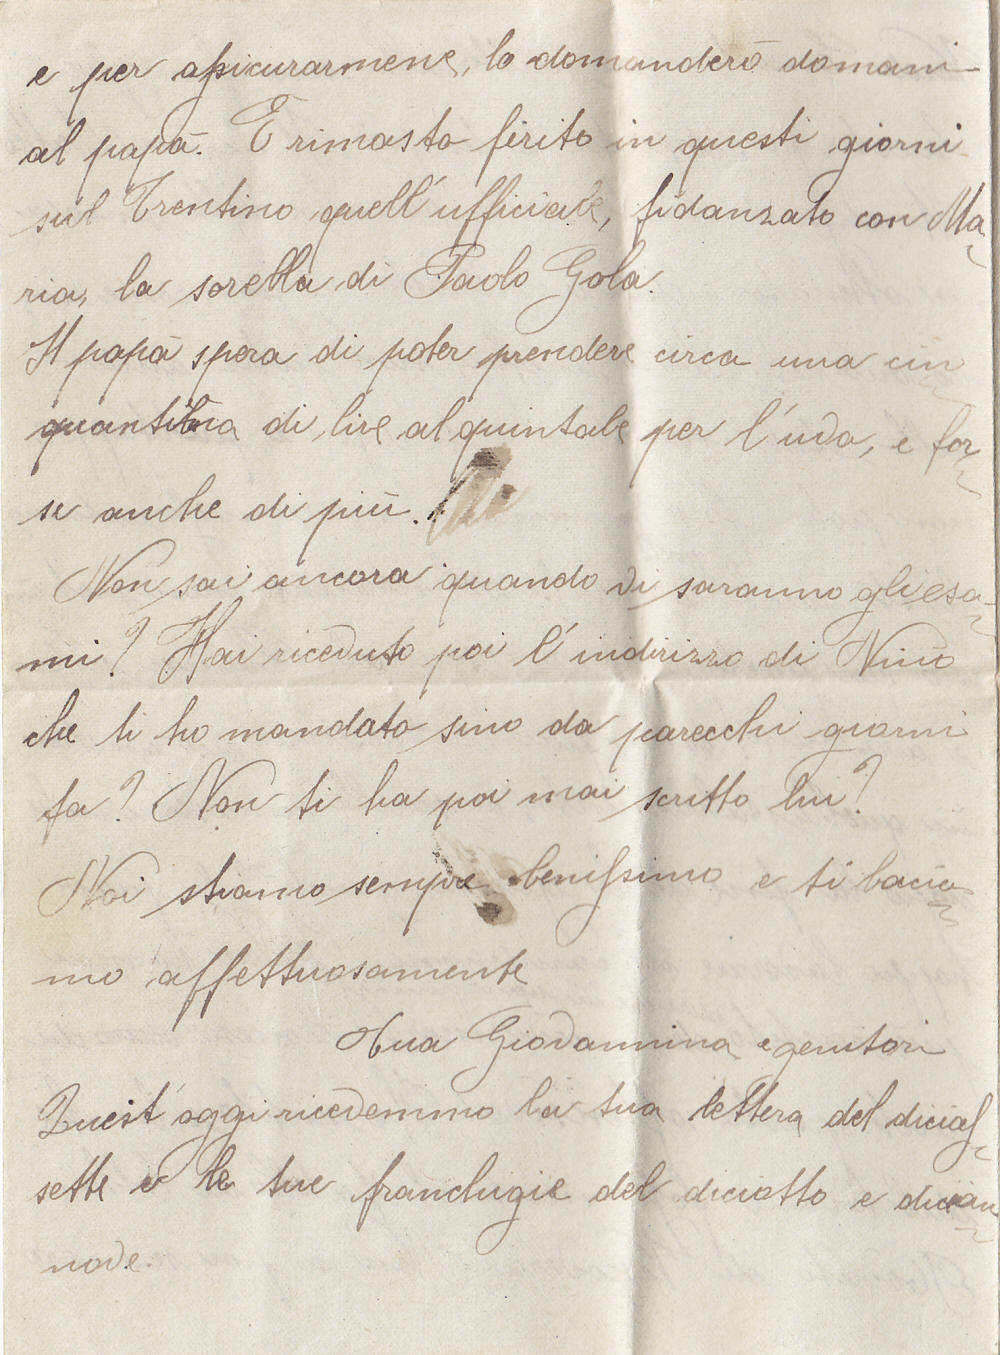 e per assicurarmene, lo domanderò domani
al papà. È rimasto ferito in questi giorni
sul Trentino quell'ufficiale, fidanzato con Ma-
ria, la sorella di Paolo Gola.
Il papà spera di poter prendere circa una cin-
quantina di lire al quintale per l'uva, e for-
se anche di più.
Non sai ancora quando vi saranno gli esa-
mi? Hai ricevuto poi l'indirizzo di Nino
che ti ho mandato sino da parecchi giorni
fa? Non ti ha poi mai scritto lui?
Noi stiamo sempre benissimo e ti bacia-
mo affettuosamente
tua Giovannina e genitori
Quest'oggi ricevemmo la tua lettera del dicias-
sette e le tue franchigie del diciotto e dician-
nove.